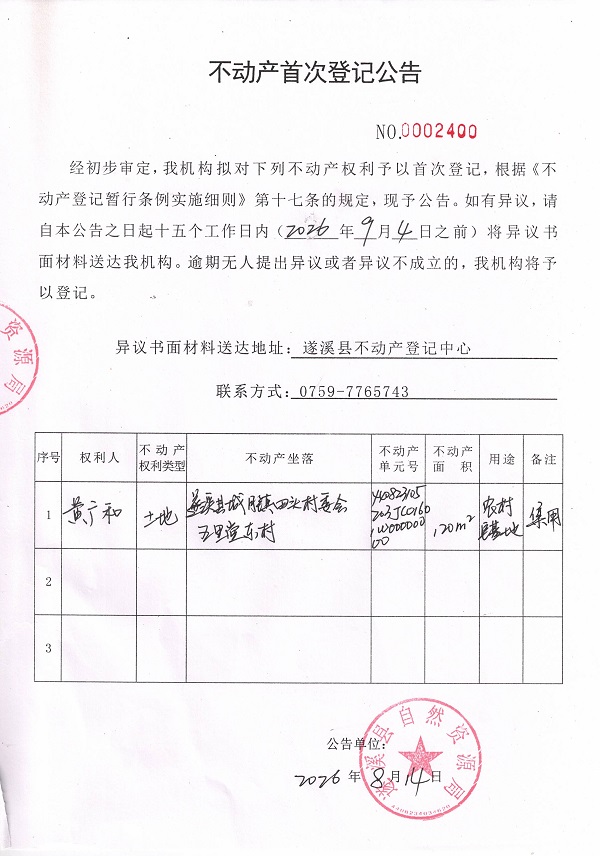 不动产首次登记公告
NO.0002400
经初步审定，我机构拟对下列不动产权利予以首次登记，根据《不
动产登记暂行条例实施细则》第十七条的规定，现予公告。如有异议，请
自本公告之日起十五个工作日内（2026年9月4日之前）将异议书
面材料送达我机构。逾期无人提出异议或者异议不成立的，我机构将予
以登记。
资源局
异议书面材料送达地址：遂溪县不动产登记中心
联系方式：0759-7765743
序号 权利人 不动产权利类型 不动产坐落 不动产单元号 不动产面积 用途 备注
1 黄广和 土地 遂溪县城月镇田头村委会
五里堂东村 120m² 农村
2
3
遂溪县自然资源局
公告单位：
2026年8月14日